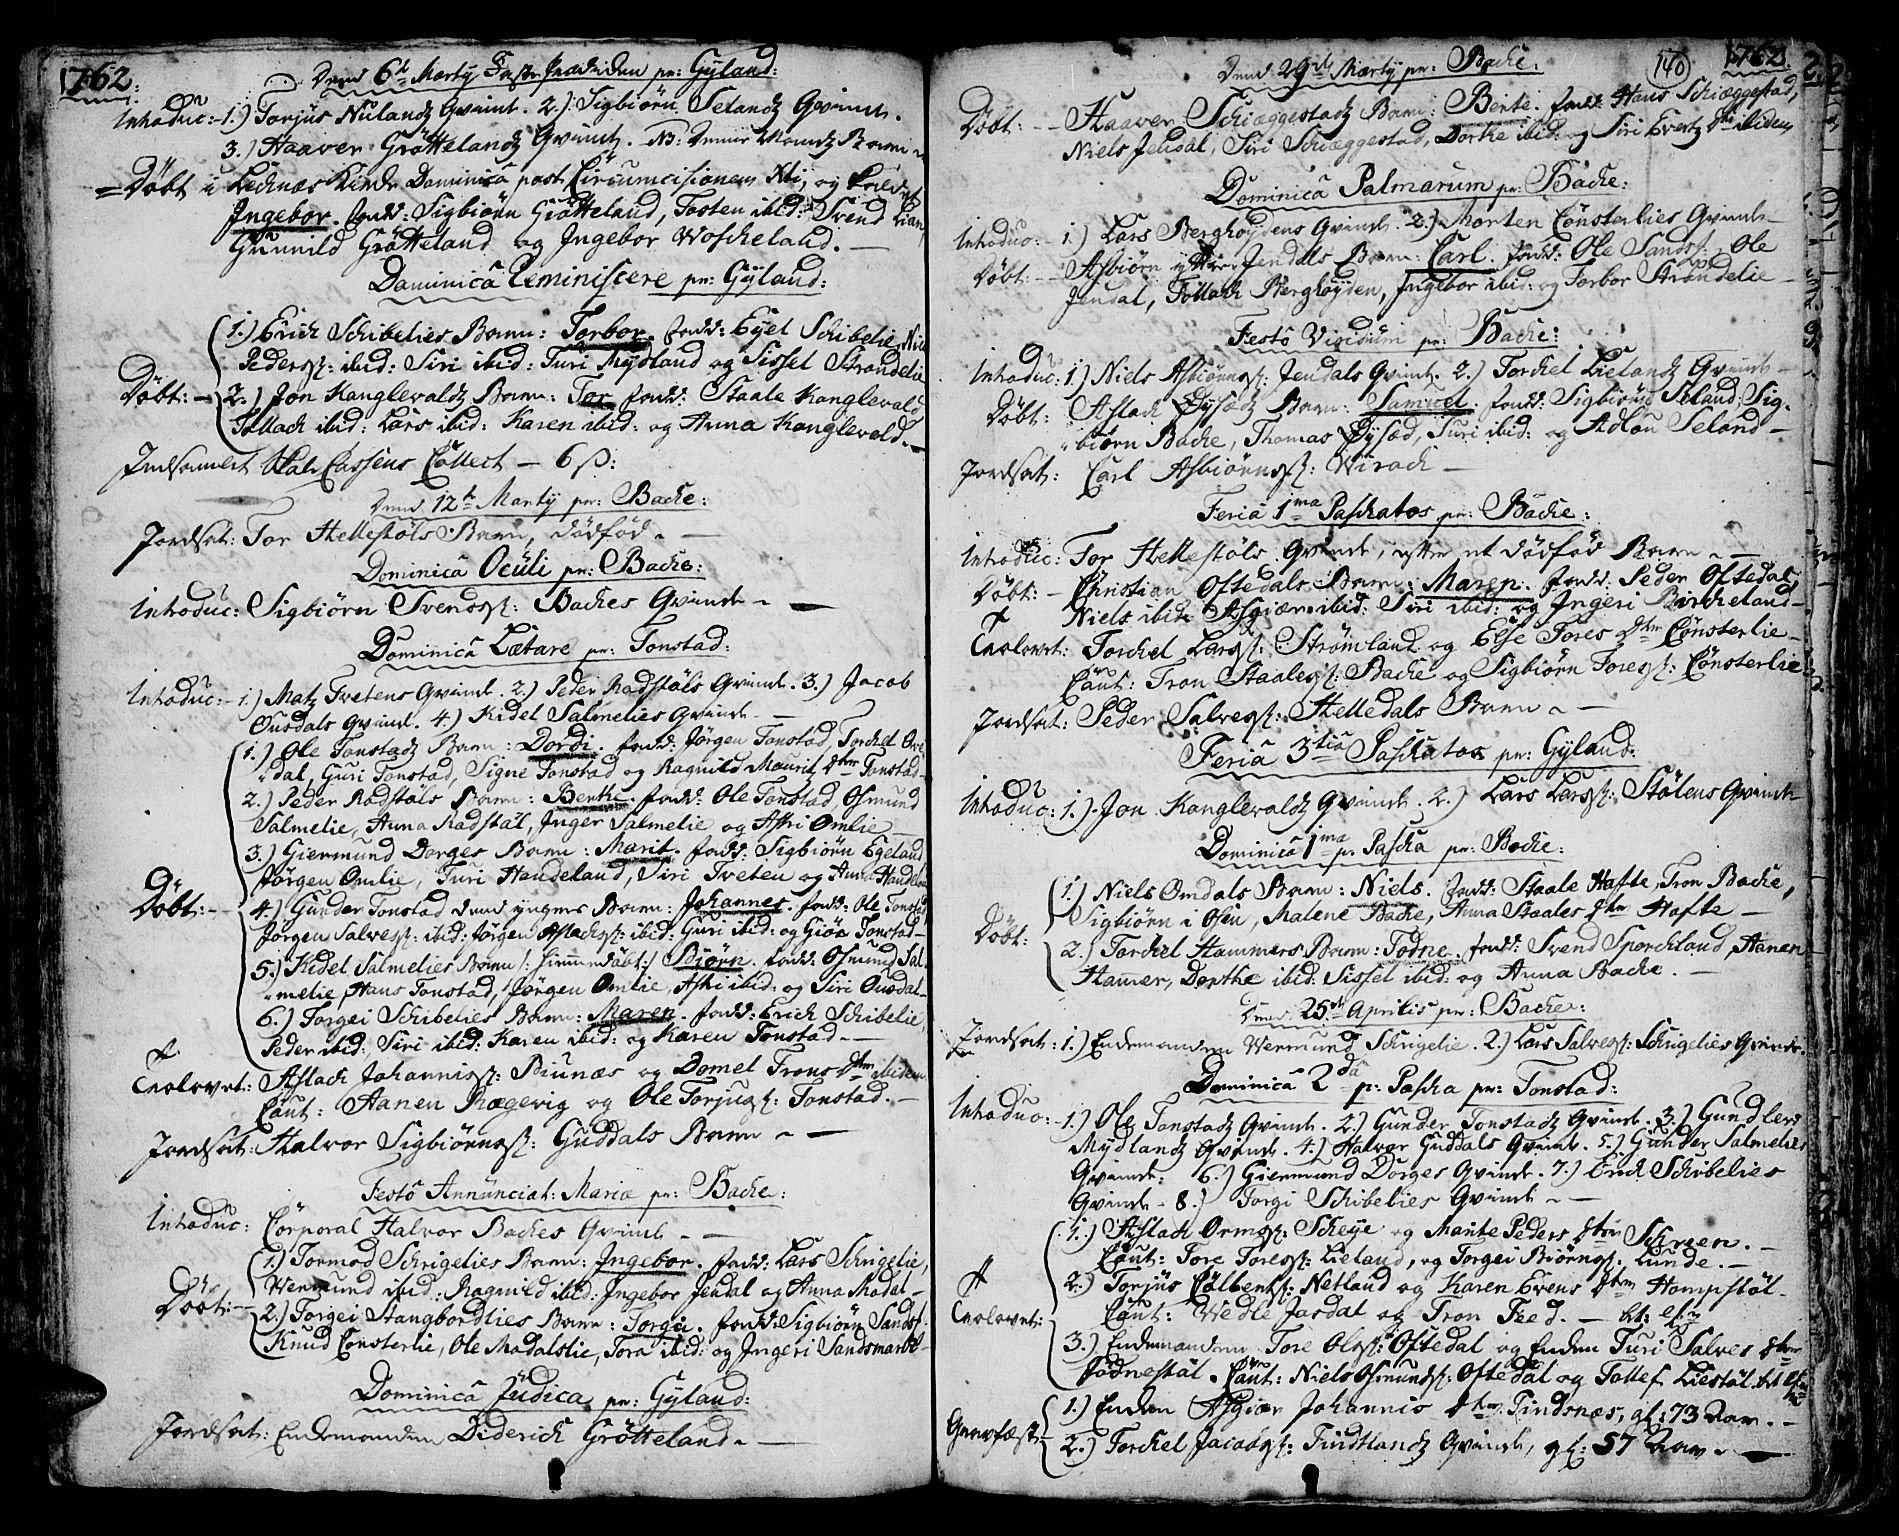 1762.
Dend 6te Marty Faste Prædiken pr: Gyland:
Introduc: 1.) Torjus Nulandz Qvinde. 2.) Sigbiörn Selandz Qvinde.
3.) Haaver Gröttelandz Qvinde. NB: Denne Mandz Barn
Döbt i Lechnæs Kirke Dominica post Circumcisionem Xti, og kaldet
Ingebor. fadd: Sigbiörn Grötteland, Tosten ibid: Svend Lian,
Gunnild Grötteland og Ingebor Woscheland.
Dominica Reminiscere pr: Gyland:
1.) Erich Schibelies Barn: Torbor. fadd: Eyel Schibelie, Niels
Peders: ibid: Siri ibid: Turi Mydland og Sissel Strandelie
Döbt: 2.) Jon Kanglevaldz Barn: Tor. fadd: Staale Kanglevald
Tollach ibid: Lars ibid: Karen ibid: og Anna Kanglevald.
Indsamlet Cassens Collect - 6 ß:
Dend 12te Marty pr: Bache:
Jordsat: Tor Hellestöls Barn, dödfød.
Dominica Oculi pr: Bache:
Introduc: Sigbiörn Svends: Baches Qvinde
Dominica Lætare pr: Tonstad:
Introduc: 1.) Matz Tvetens Qvinde. 2.) Peder Radstöls Qvinde. 3.) Jacob
Ousdals Qvinde. 4.) Kidel Salmelies Qvinde
1.) Ole Tonstadz Barn: Dordi. fadd: Jörgen Tonstad, Torchel Ous-
dal, Guri Tonstad, Signe Tonstad og Ragnild Mauritz dtter Tonstad
2.) Peder Radstöls Barn: Benthe. fadd: Ole Tonstad, Osmund
Salmelie, Anna Radstöl, Inger Salmelie og Astri Omlie
3.) Giermund Dorges Barn: Marit. fadd: Sigbiörn Egeland
Jörgen Omlie, Turi Haudeland, Siri Tveten og Anna Haudeland
Döbt: 4.) Gunder Tonstad dend yngres Barn: Johannes. fadd: Ole Tonstad
Jörgen Salves: ibid: Jörgen Aslachs: ibid: Guri ibid: og Giöa Tonstad
5.) Kidel Salmelies Barn /: hiemmedöbt :/ Biörn. fadd: Osmund Sal-
melie, Hans Tonstad, Jörgen Omlie, Astri ibid: og Siri Ousdal
6.) Torgei Schibelies Barn: Maren. fadd: Erich Schibelie,
Peder ibid: Siri ibid: Karen ibid: og Karen Tonstad.
Trolovet: Aslach Johannis: Biunæs og Domel Trons dtter ibidem
Caut: Aanen Rægevig og Ole Torjus: Tonstad.
Jordsat: Halvor Sigbiörns: Guddals Barn
Festo Annunciat: Mariæ pr: Bache:
Introduc: Corporal Halvor Baches Qvinde
1.) Tormod Schrigelies Barn: Ingebor. fadd: Lars Schrigelie,
Wermund ibid: Ragnild ibid: Ingebor Jendal og Anna Modal
Döbt: 2.) Torgei Stangbordlies Barn: Torgei. fadd: Sigbiörn Sands:
Knud Consterlie, Ole Madalslie, Tora ibid: og Ingeri Sandsmark
Dominica Judica pr: Gyland:
Jordsat: Enkemanden Diderich Grötteland.
140
1762
Dend 29de Marty pr: Bache:
Döbt: Haaver Schiæggestadz Barn: Bente. fadd: Hans Schiæggestad,
Niels Jendal, Siri Schiæggestad, Dorthe ibid: og Siri Evertz dtter ibidem
Dominica Palmarum pr: Bache:
Introduc: 1.) Lars Berghöydens Qvinde. 2.) Morten Consterlies Qvinde
Döbt: Asbiörn ytter Jendals Barn: Carl. fadd: Ole Sands: Ole
Jendal, Tollach Berghöyden, Ingebor ibid: og Torbor Strandelie
Festo Viridium pr: Bache:
Introduc: 1.) Niels Asbiörns: Jendals Qvinde. 2.) Torchel Lielandz Qvinde
Döbt: Aslach Dysædz Barn: Samuel. fadd: Sigbiörn Seland, Sig-
biörn Bache, Thomas Dysæd, Turi ibid: og Adlou Seland
Jordsat: Carl Asbiörns: Wirach
Feria 1ma Paschatos pr: Bache:
Introduc: Tor Hellestöls Qvinde, efter et dödfød Barn
Döbt: Christian Oftedals Barn: Maren. fadd: Peder Oftedal,
Niels ibid: Asgiær ibid: Siri ibid: og Ingeri Bircheland
Trolovet: Torchel Lars: Strömland og Else Tores dtter Consterlie
Caut: Tron Staales: Bache og Sigbiörn Tores: Consterlie
Jordsat: Peder Salves: Helledals Barn
Feria 3tia Paschatos pr: Gyland:
Introduc: 1.) Jon Kanglevaldz Qvinde. 2.) Lars Lars: Stölens Qvinde
Dominica 1ma p: Pascha pr: Bache:
1.) Niels Omdals Barn: Niels. fadd: Staale Hafte, Tron Bache,
Sigbiörn i Osen, Malene Bache, Anna Staales dtter Hafte
Döbt: 2.) Torchel Hammers Barn: Todne. fadd: Svend Sporchland, Aanen
Hammer, Dorthe ibid: Sissel ibid: og Anna Bache.
Dend 25de Aprilis pr: Bache:
Jordsat: 1.) Enkemanden Wermund Schrigelie. 2.) Lars Salves: Schrigelies Qvinde.
Dominica 2da p: Pascha pr: Tonstad:
Introduc: 1.) Ole Tonstadz Qvinde. 2.) Gunder Tonstadz Qvinde. 3.) Gundlers
Mydlandz Qvinde. 4.) Halvor Guddals Qvinde. 5.) Gunder Salmelies
Qvinde: 6.) Giermund Dorges Qvinde. 7.) Erich Schibelies
Qvinde. 8.) Torgi Schibelies Qvinde
1.) Aslach Orms: Scheye og Marite Peders dtter Schreen.
Caut: Tore Tores: Lieland, og Torgei Biörns: Lunde.
Trolovet: 2.) Torjus Colbents: Netland og Karen Evens dtter Hompstöl
Caut: Wedle Josdal og Tron Feed.
3.) Enkemanden Tore Ols: Oftedal og Enken Turi Salves dtter
Födnestöl. Caut: Niels Osmunds: Oftedal og Tollef Liestöl.
Gravfæst: 1.) Enken Asgiær Johannis dtter Tindsnæs, gl: 73 Aar.
2.) Torchel Jacobs: Findtlandz Qvinde, gl: 57 Aar.